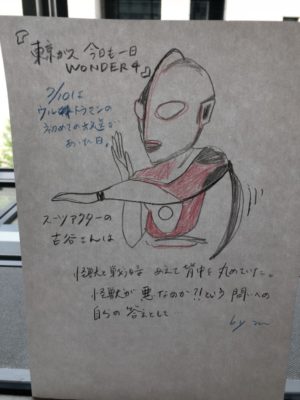 『東京ガス 今日も一日
WONDER4』
7/10は
ウルトラマンの
初めての放送が
あった日。
スーツアクターの
古谷さんは
怪獣と戦う時 あえて背中を丸めていた。
怪獣が悪なのか?!という問いへの
自らの答えとして
by